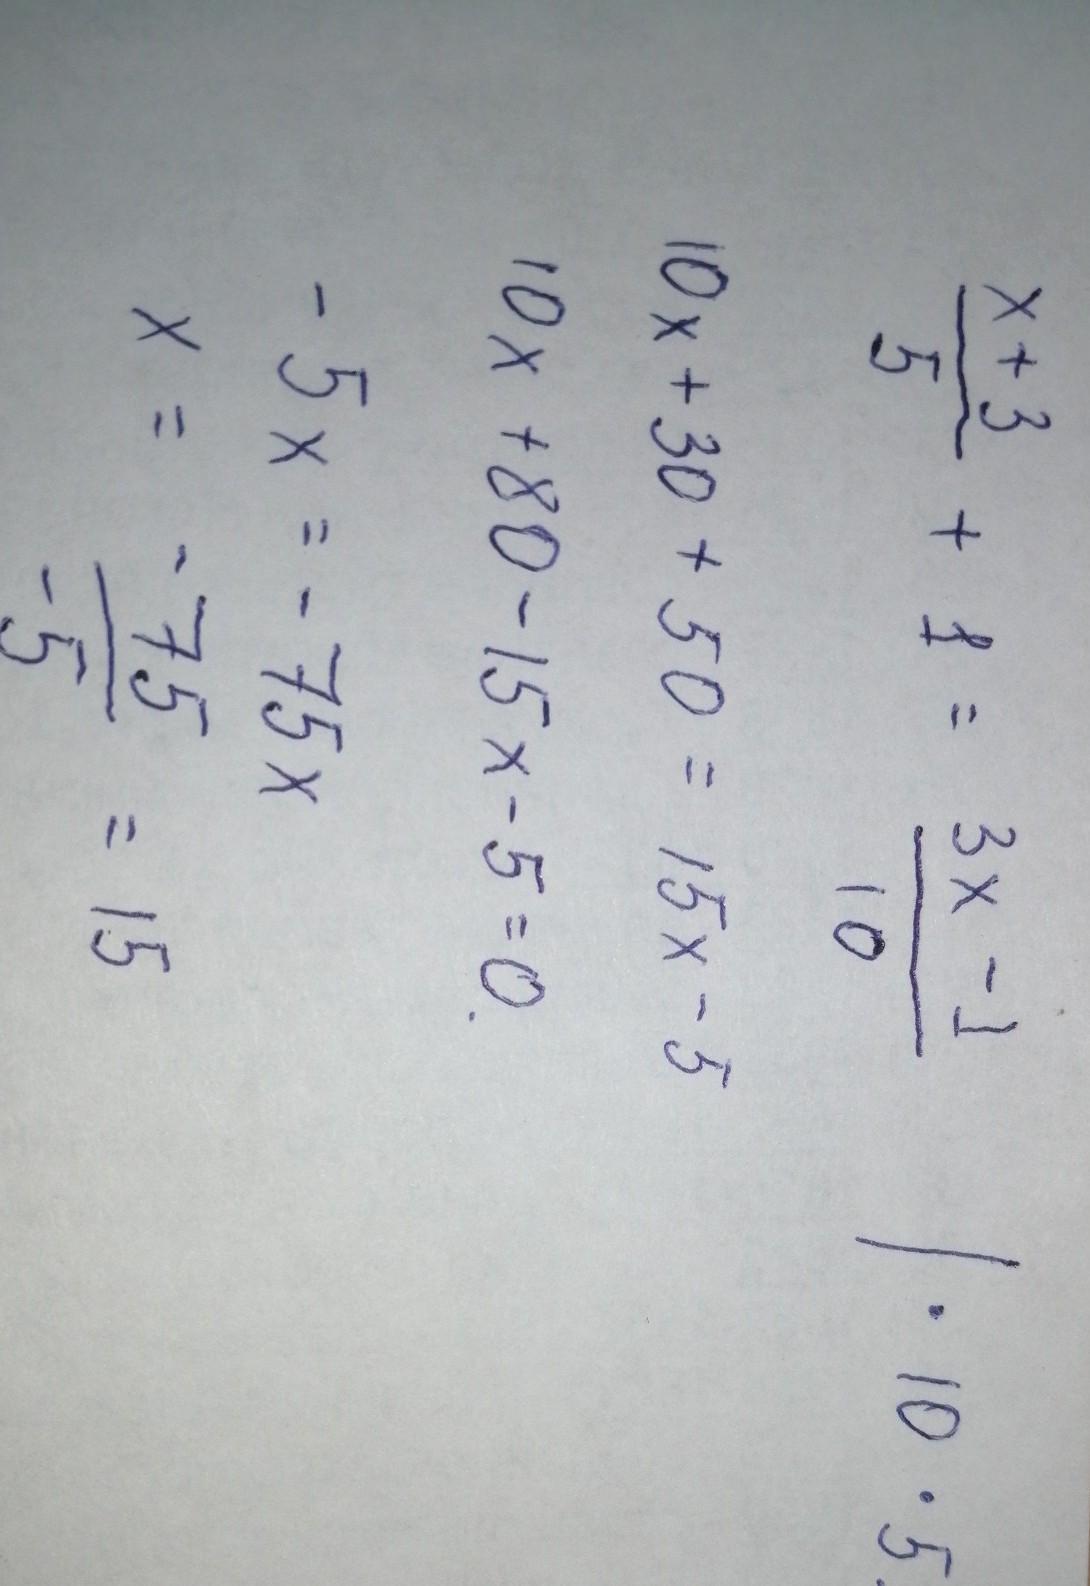 x+3/5 + 1 = 3x-1/10 | · 10 · 5.
10x + 30 + 50 = 15x - 5
10x + 80 - 15x - 5 = 0.
- 5x = - 75x
x = -75/-5 = 15